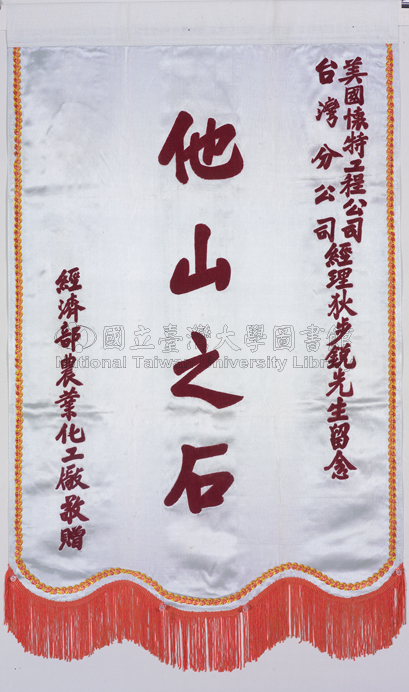 美國懷特工程公司
台灣分公司經理狄步銳先生留念
他山之石
經濟部農業化工廠敬贈
國立臺灣大學圖書館
National Taiwan University Library